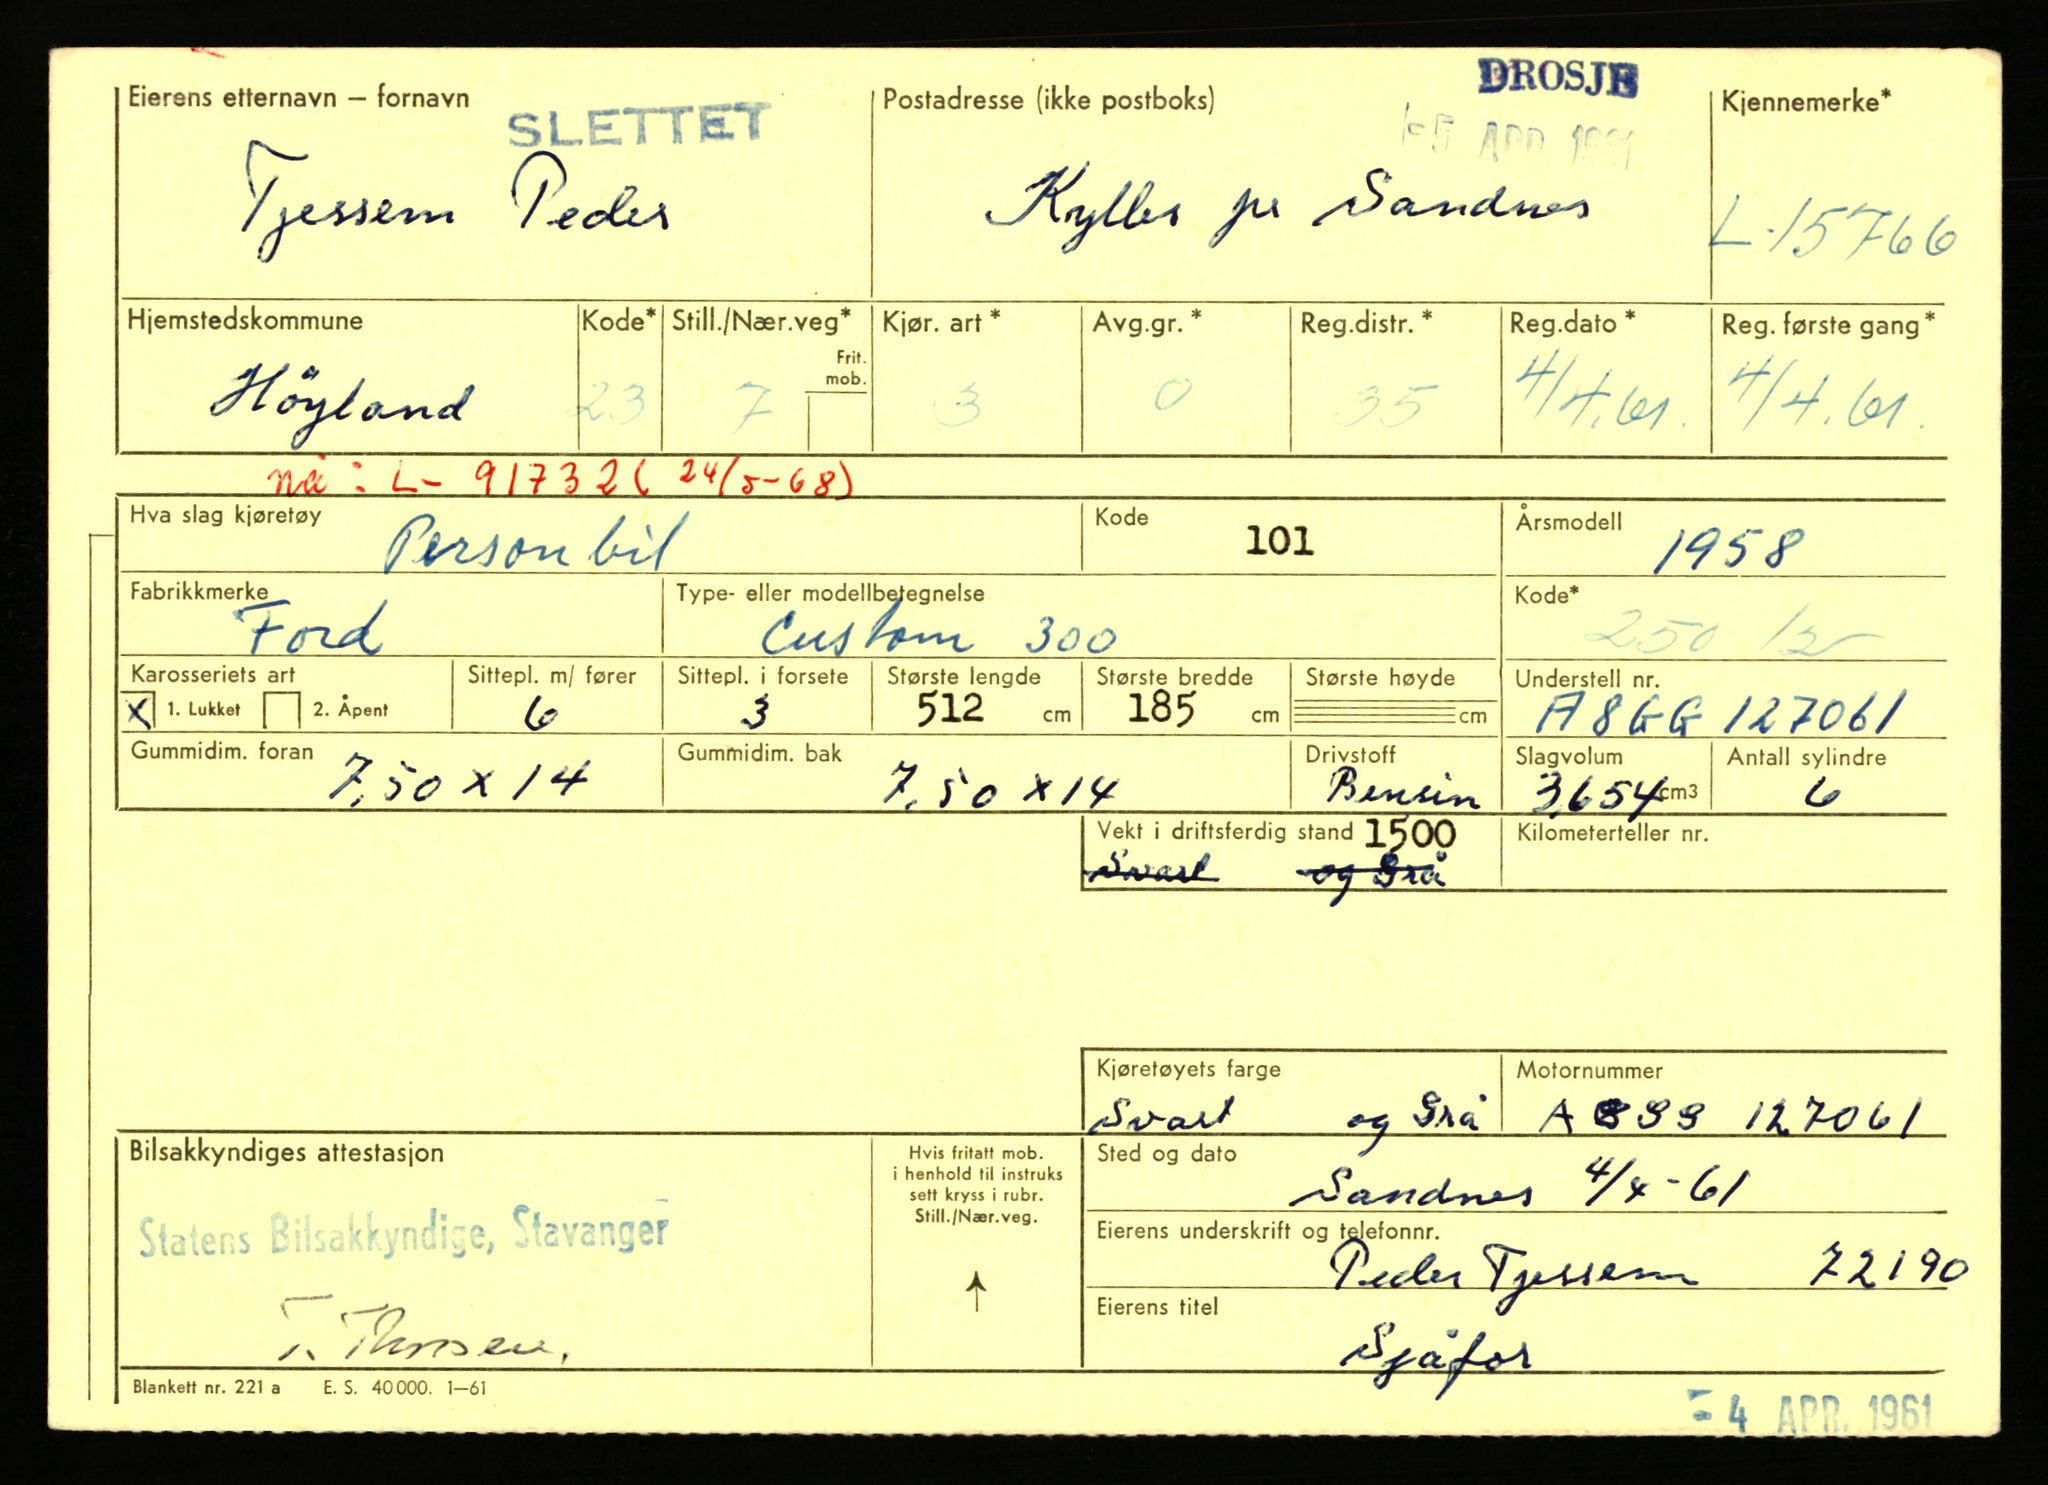 DROSJE
Eierens etternavn – fornavn
SLETTET
Postadresse (ikke postboks)
5 APR. 1961
Kjennemerke*
Tjessem Peder
Kylles pr Sandnes
L-15766
Hjemstedskommune Kode* Still./Nær.veg* Kjør. art * Avg.gr. * Reg.distr. * Reg.dato * Reg. første gang *
Frit. mob.
Høyland 23 7 3 0 35 4/4.61. 4/4.61.
nå : L- 91732 ( 24/5-68)
Hva slag kjøretøy Personbil Kode 101 Årsmodell 1958
Fabrikkmerke Type- eller modellbetegnelse Kode*
Ford Custom 300 250
Karosseriets art Sittepl. m/ fører Sittepl. i forsete Største lengde Største bredde Største høyde Understell nr.
X 1. Lukket 2. Åpent 6 3 512 cm 185 cm cm A8GG 127061
Gummidim. foran Gummidim. bak Drivstoff Slagvolum Antall sylindre
7,50 x 14 7,50 x 14 Bensin 3654 cm3 6
Vekt i driftsferdig stand 1500 Kilometerteller nr.
Svart og Grå
Kjøretøyets farge Motornummer
Svart og Grå A8GG 127061
Bilsakkyndiges attestasjon
Hvis fritatt mob.
i henhold til instruks
sett kryss i rubr.
Still./Nær.veg.
Sted og dato
Sandnes 4/4-61
Statens Bilsakkyndige, Stavanger
Eierens underskrift og telefonnr.
Peder Tjessem 72190
Eierens titel
Sjåfør
Blankett nr. 221 a E. S. 40 000. 1–61
- 4 APR. 1961